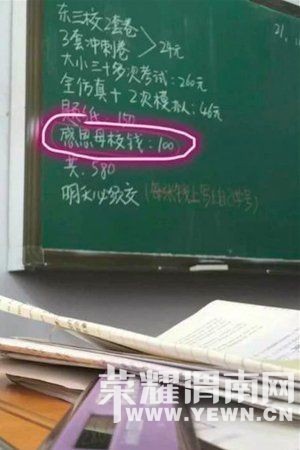 东三校2套卷
3套冲刺卷 > 24元
大小三十多次考试:260元
全仿真+2次模拟:46元
题纸:150
感恩母校钱:100
共:580
明天必须交(每张钱上写自己学号)
21,
荣耀渭南网
WWW.YEWN.CN